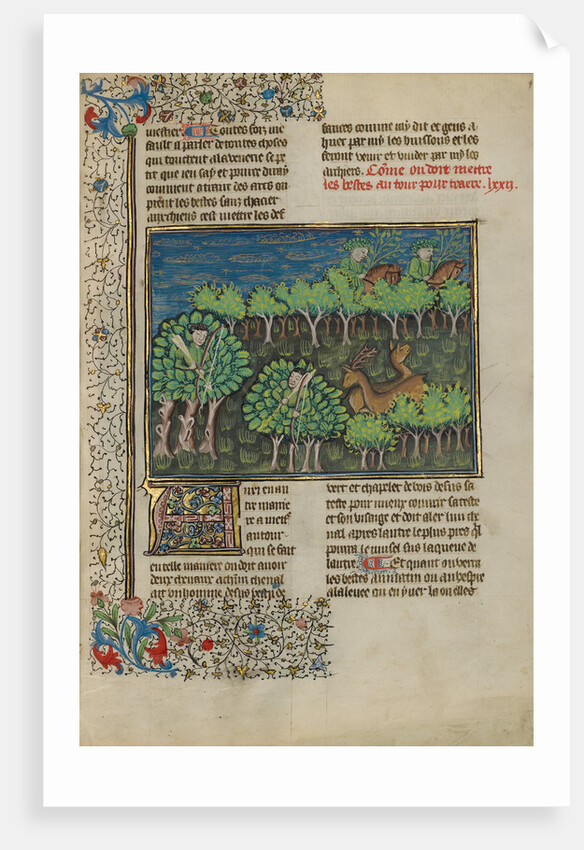 mestier Toutes foiz me
fault a parler de toutes choses
qui touchent a la venerie se pe
tit que ien say et pource diray
comment a traire des arcs on
prent les bestes sanz chacier
aux chiens cest mettre les def
fances comme iay dit et gens a
huer par my les buissons et les
feront venir et vuider par my les
archiers. Come on doit mettre
les bestes au tour pour traire. lxxij.
en au
re manie
re a mett
autour
qui se fait
en telle maniere on doit auoir
deux cheuaux a chun cheual
ait un homme dessus vestu de
vert et chapelet de bois dessus sa
teste pour mieux couurir sa teste
et son visaige et doit aler lun che
ual apres lautre le plus pres ql
pourra le musel sus la queue de
lautre Et quant ou verra
les bestes au matin ou au vespre
a la veue ou en yuer la ou elles